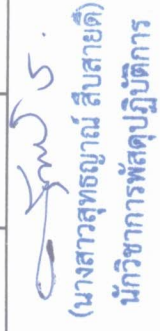 (นางสาวสุทธญาณ์ สืบสายดี)
นักวิชาการพัสดุปฏิบัติการ